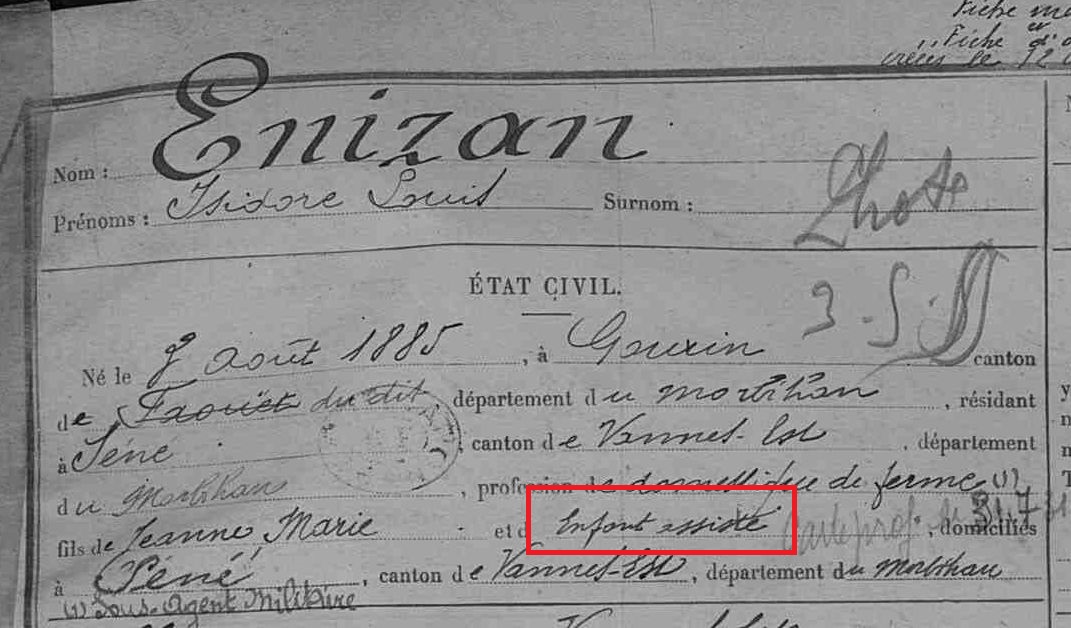 Fiche
Fiche
Enizan
Nom :
Isidore Louis
Prénoms : Surnom :
Photo
ÉTAT CIVIL.
3 - S.
Né le 8 août 1885, à Gourin canton
de Faouët du dit département du morbihan, résidant
à Séné, canton de Vannes-Est, département
du Morbihan, profession de domestique de ferme (1)
fils de Jeanne Marie et d Enfant assisté Carte prof. 31.7.31, domiciliés
à Séné, canton de Vannes-Est, département du Morbihan
(1) Sous-Agent Militaire